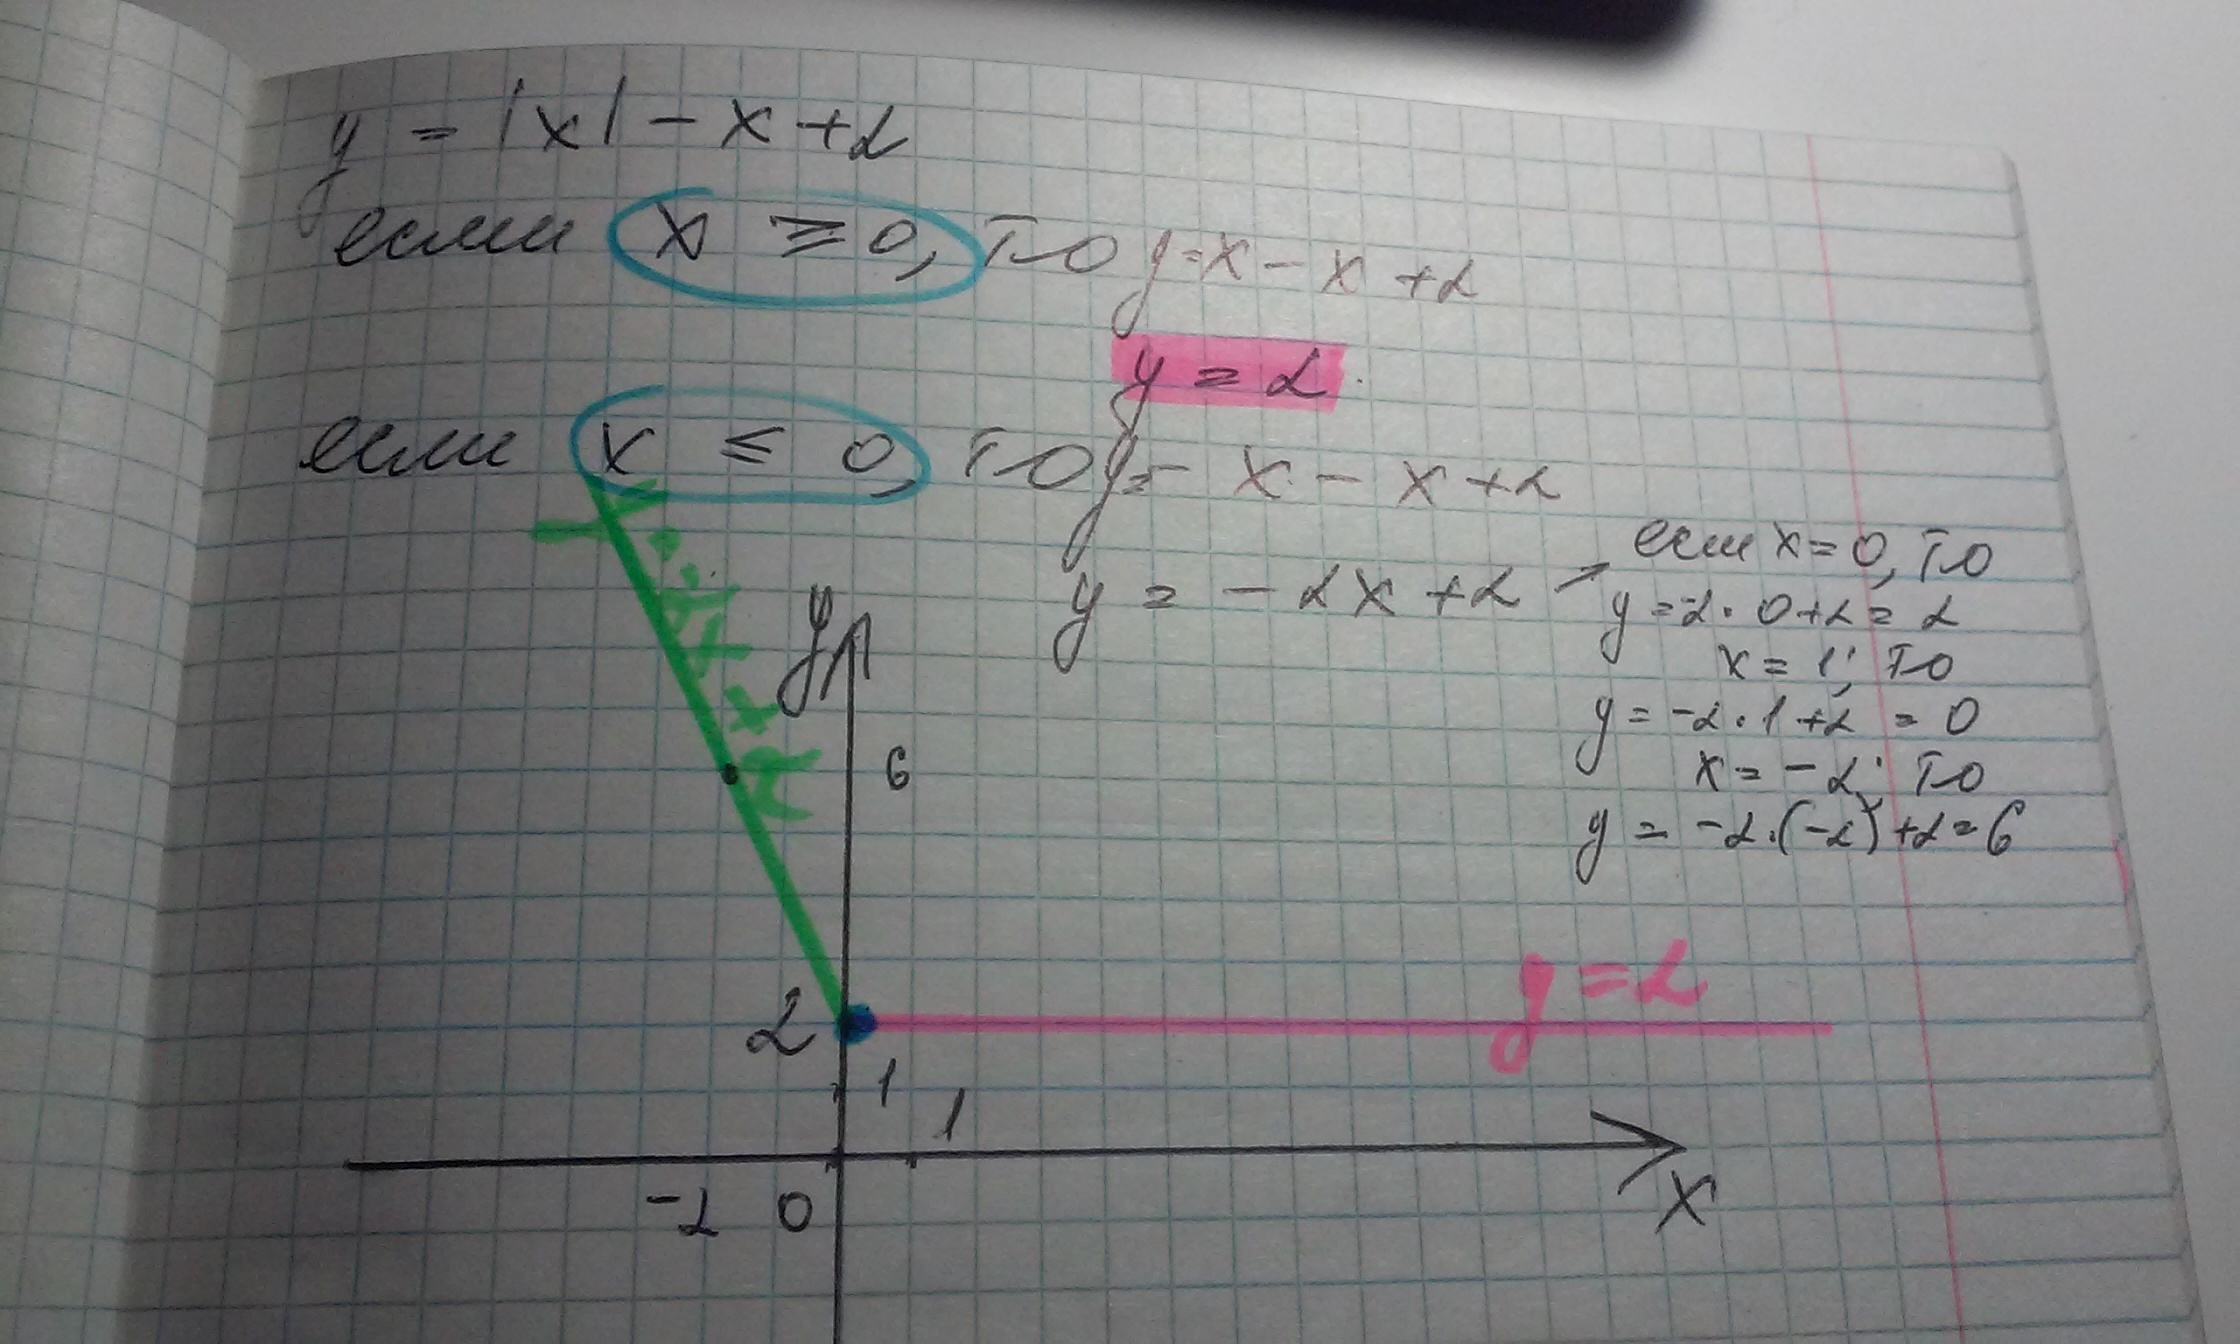 y = |x| - x + 2
если x ≥ 0, то y = x - x + 2
y = 2.
если x ≤ 0, то y = - x - x + 2
y = - 2x + 2 → если x = 0, то
y = -2 · 0 + 2 = 2
x = 1; то
y = -2 · 1 + 2 = 0
x = -2; то
y = -2 · (-2) + 2 = 6
y = -2x + 2
y
6
y = 2
2
1
1
-2 0
x